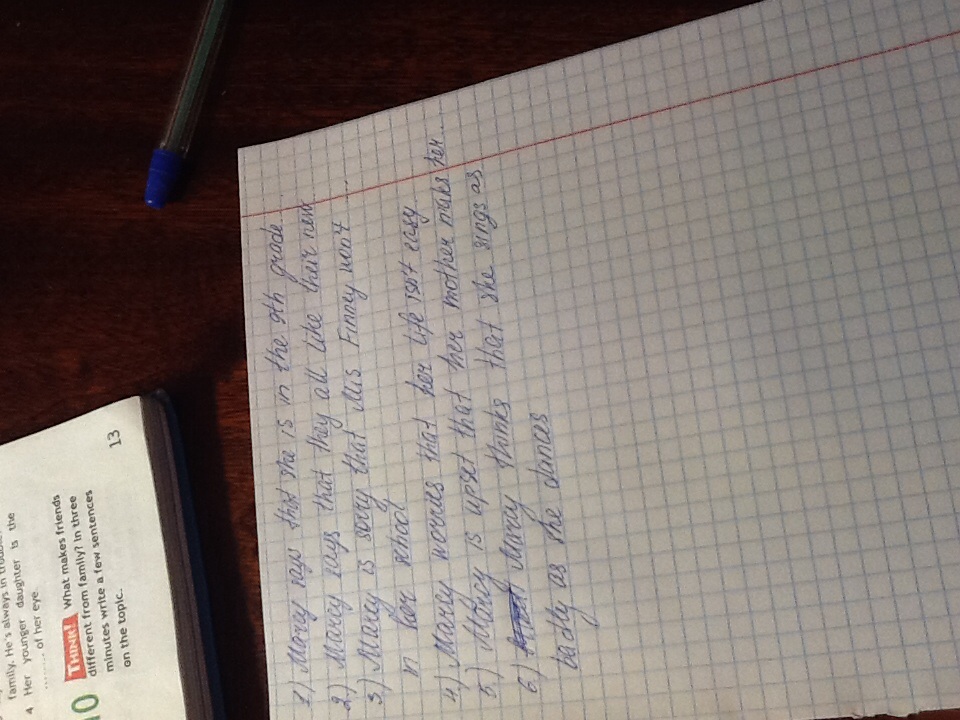 family. He's always in
4 Her younger daughter is the
........ of her eye.
10 THINK! What makes friends
different from family? In three
minutes write a few sentences
on the topic.
13
1) Marcy says that she is in the 9th grade
2) Marcy says that they all like their new
3) Marcy is sorry that Ms Finney won't
in her school
4) Marcy worries that her life isn't easy
5) Marcy is upset that her mother maks her
6) Marcy thinks that she sings as
badly as she dances